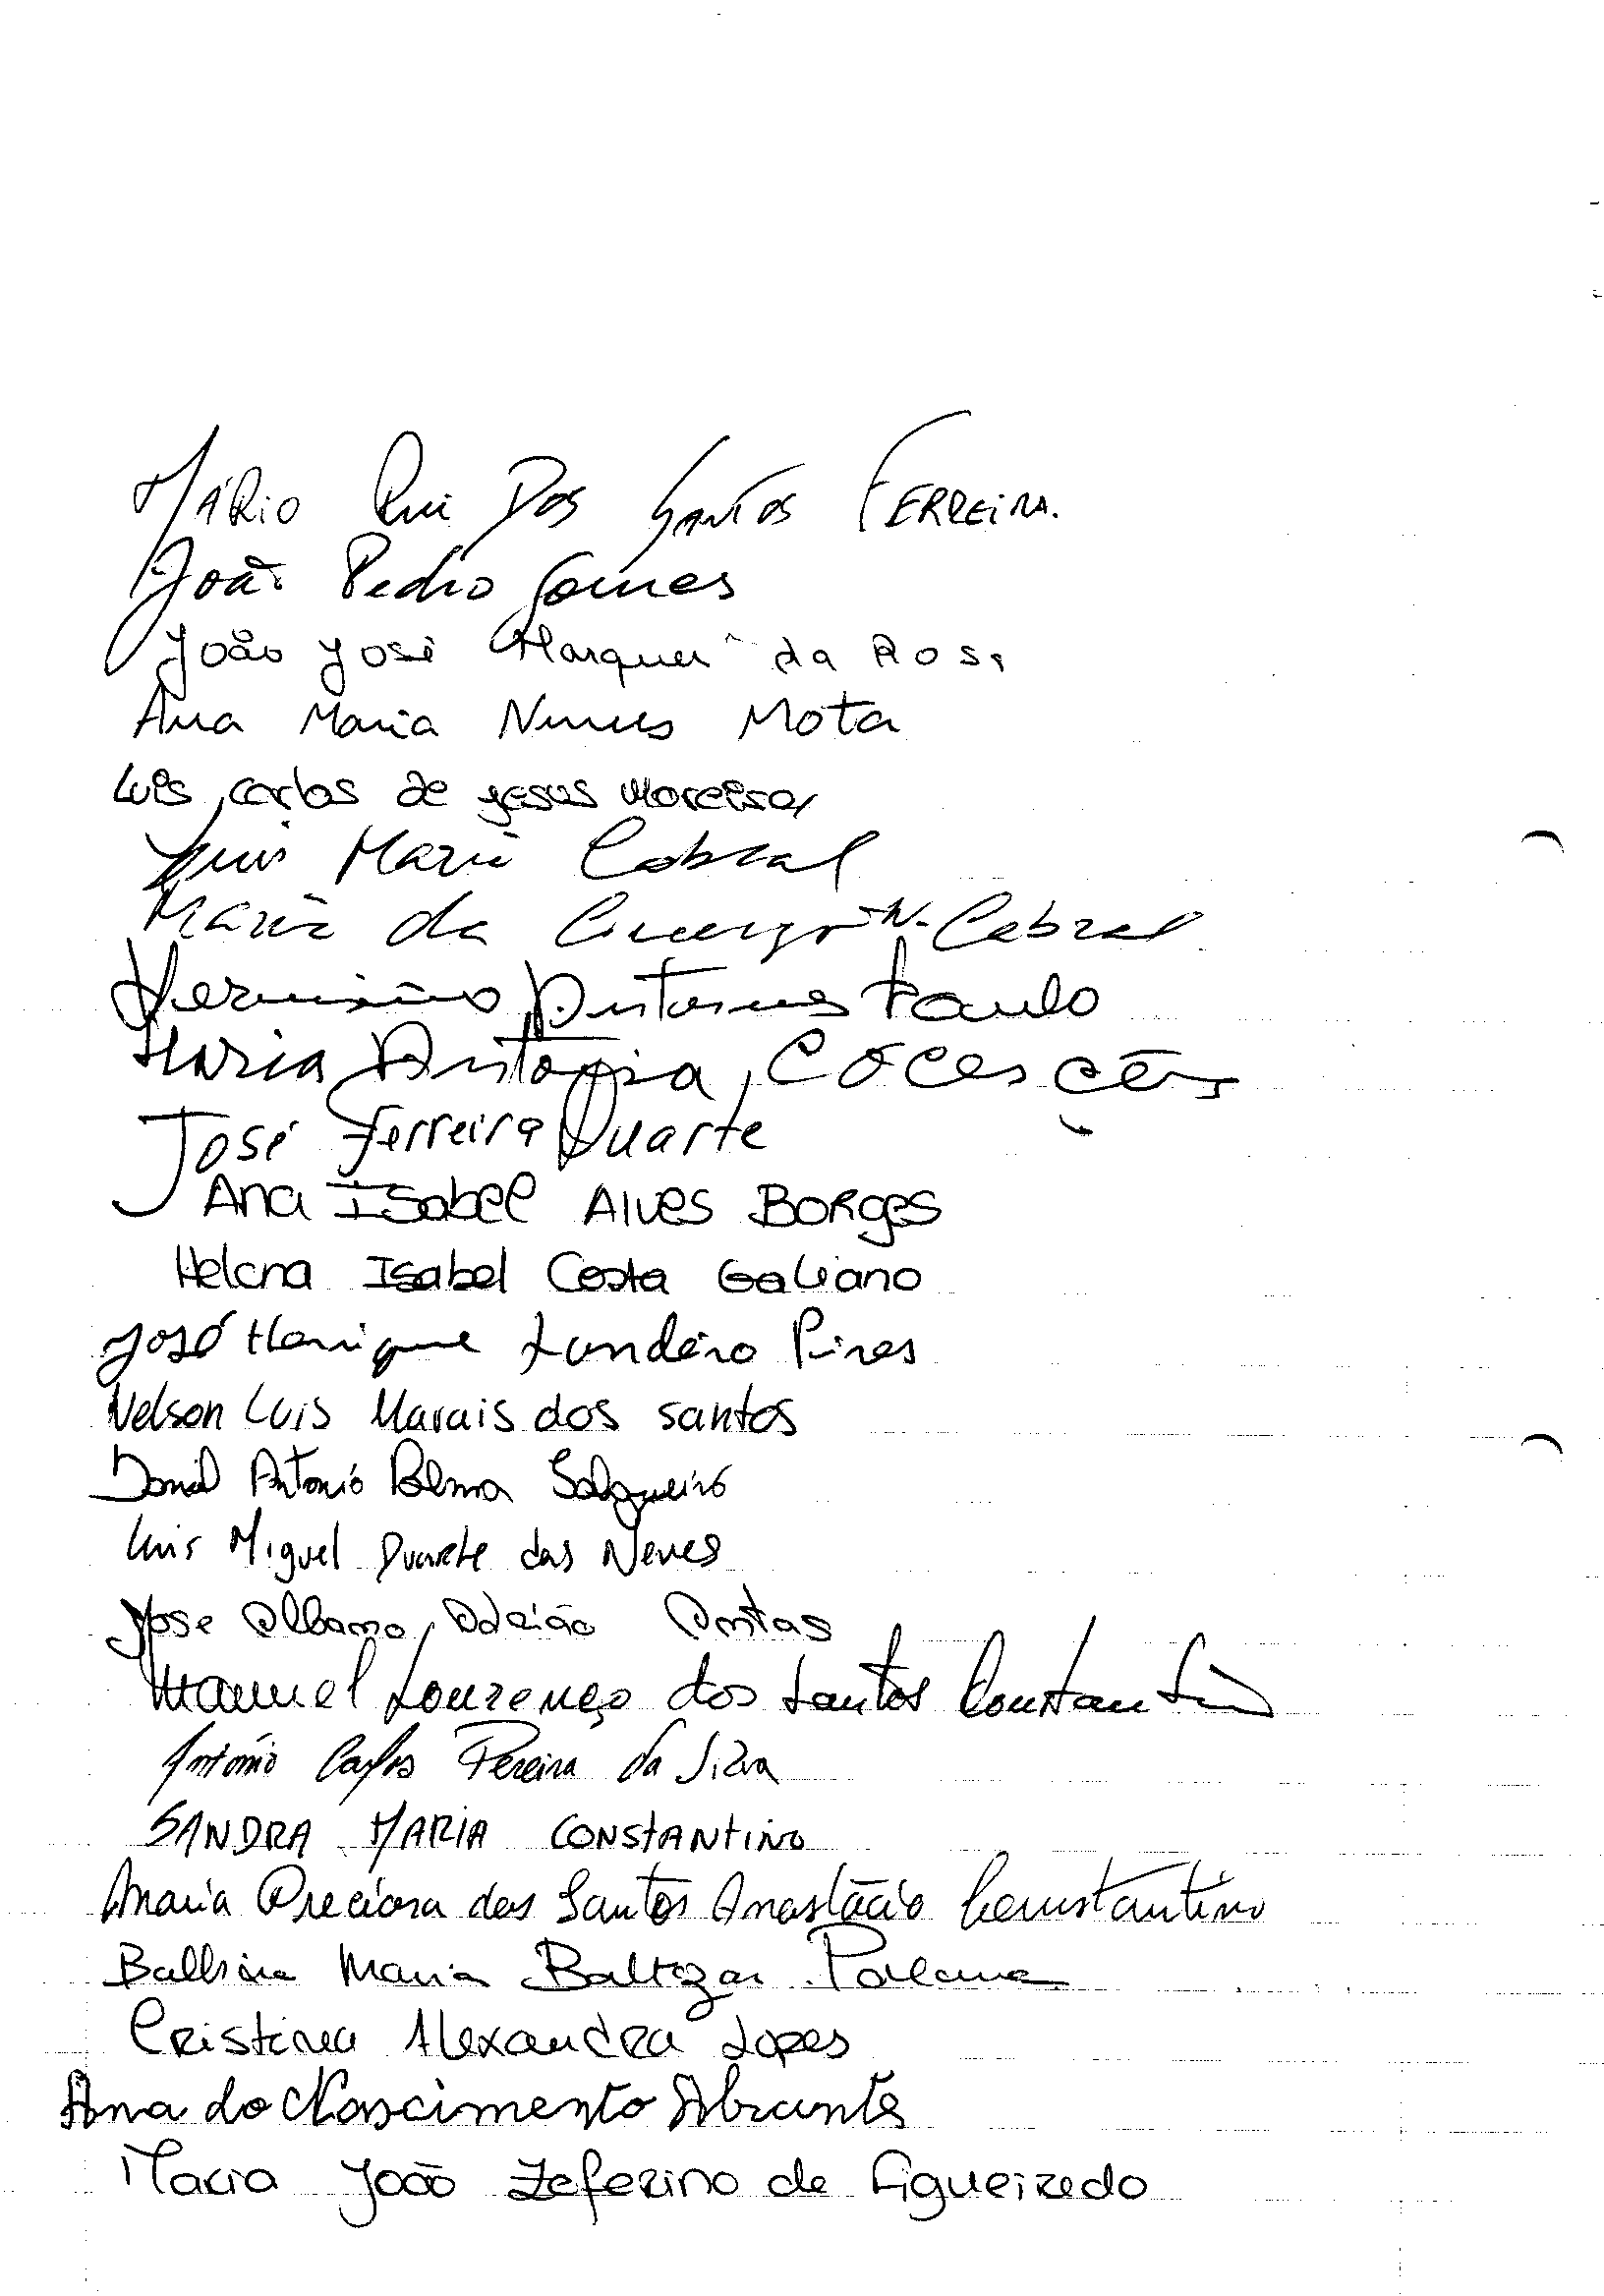 Mário Rui Dos Santos Ferreira.
João Pedro Gomes
João José Marques da Rosa
Ana Maria Nunes Mota
Luis Carlos de Jesus Moreira
Luis Maria Cabral
Maria da N. Cabral
Herminio Antunes Paulo
Maria Antónia
José Ferreira Duarte
Ana Isabel Alves Borges
Helena Isabel Costa Galiano
José Henrique Landeiro Pires
Nelson Luis Marais dos Santos
Daniel António Palma Salgueiro
Luis Miguel Duarte das Neves
Jose Albano Adrião Dantas
Manuel Lourenço dos Santos Constantino
António Carlos Pereira da Silva
SANDRA MARIA CONSTANTINO
Maria Preciosa dos Santos Anastácio Constantino
Balbina Maria Baltazar
Cristina Alexandra Lopes
Ana do Nascimento Abrantes
Maria João Zeferino de Figueiredo